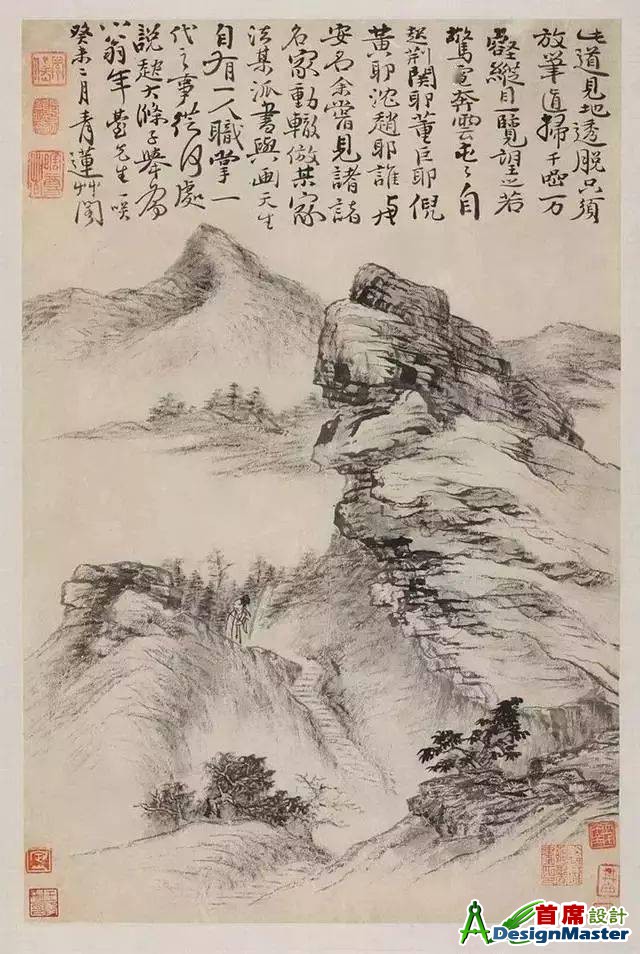 此道見地透脫只須
放筆直掃千巖万
壑縱目一覽望之若
驚電奔雲屯々自
起荊関耶董巨耶倪
黃耶沈趙耶誰与
安名余嘗見諸諸
名家動輒倣某家
法某派書與画天生
自有一人職掌一
代之事從何處
說起大滌子舉為
翁年臺先生一咲
癸未二月青蓮艸閣
首席設計
ADesignMaster